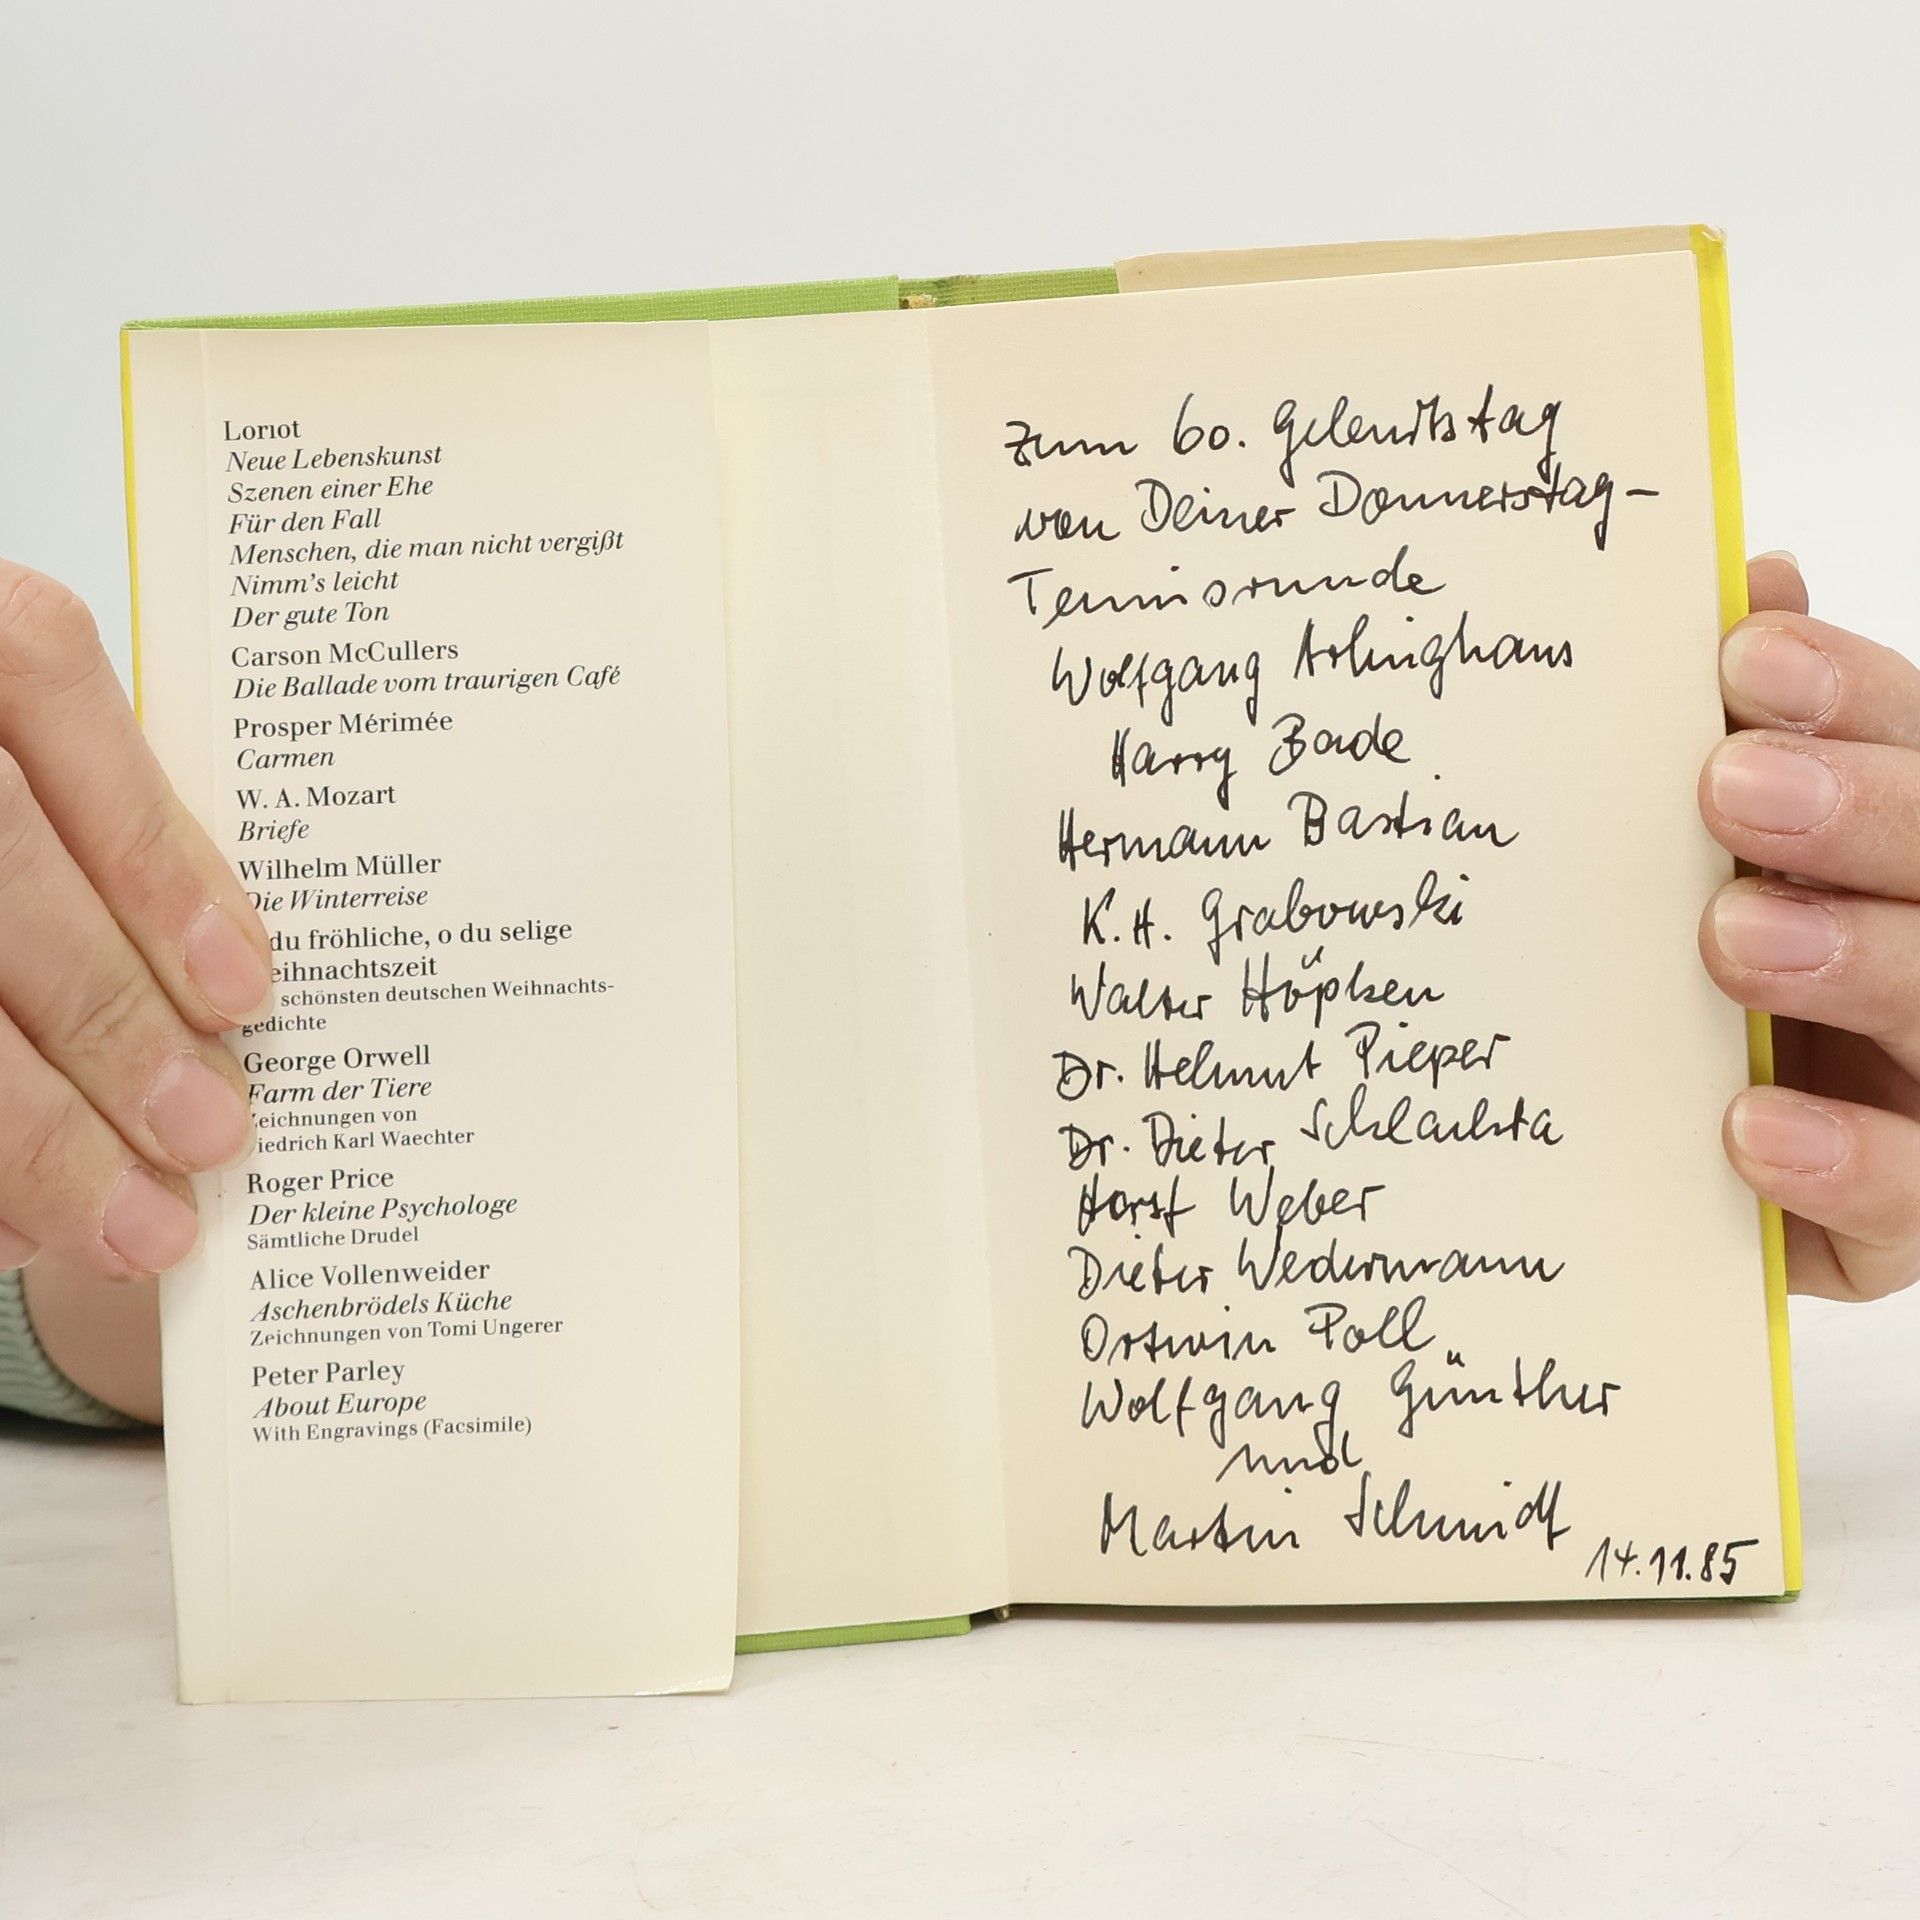 Loriot
Neue Lebenskunst
Szenen einer Ehe
Für den Fall
Menschen, die man nicht vergißt
Nimm's leicht
Der gute Ton
Carson McCullers
Die Ballade vom traurigen Café
Prosper Mérimée
Carmen
W. A. Mozart
Briefe
Wilhelm Müller
Die Winterreise
du fröhliche, o du selige
eihnachtszeit
schönsten deutschen Weihnachts-
gedichte
George Orwell
Farm der Tiere
Zeichnungen von
iedrich Karl Waechter
Roger Price
Der kleine Psychologe
Sämtliche Drudel
Alice Vollenweider
Aschenbrödels Küche
Zeichnungen von Tomi Ungerer
Peter Parley
About Europe
With Engravings (Facsimile)
Zum 60. Geburtstag
von Deiner Donnerstag-
Tennisrunde
Wolfgang Arlinghaus
Harry Bade
Hermann Bastian
K. H. Grabowski
Walter Höpken
Dr. Helmut Pieper
Dr. Dieter Schlachta
Horst Weber
Dieter Wedermann
Ortwin Poll
Wolfgang Günther
und
Martin Schmidt
14.11.85